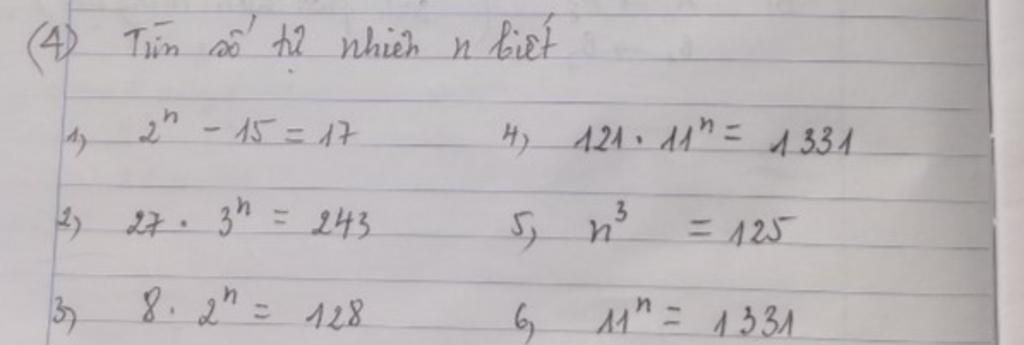 (4) Tìm số tự nhiên n biết
1) 2ⁿ - 15 = 17 4) 121 . 11ⁿ = 1331
2) 27 . 3ⁿ = 243 5) n³ = 125
3) 8 . 2ⁿ = 128 6) 11ⁿ = 1331